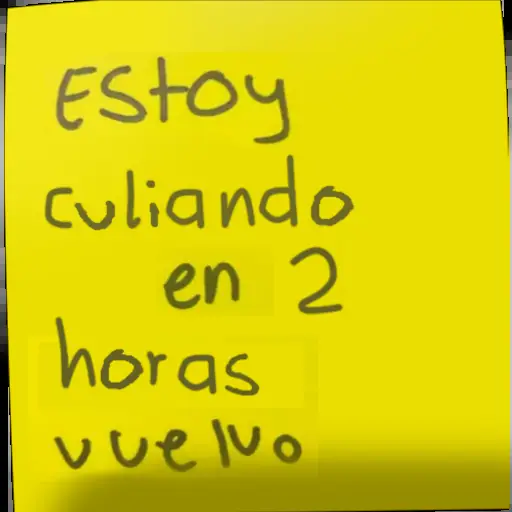 Estoy
culiando
en 2
horas
vuelvo